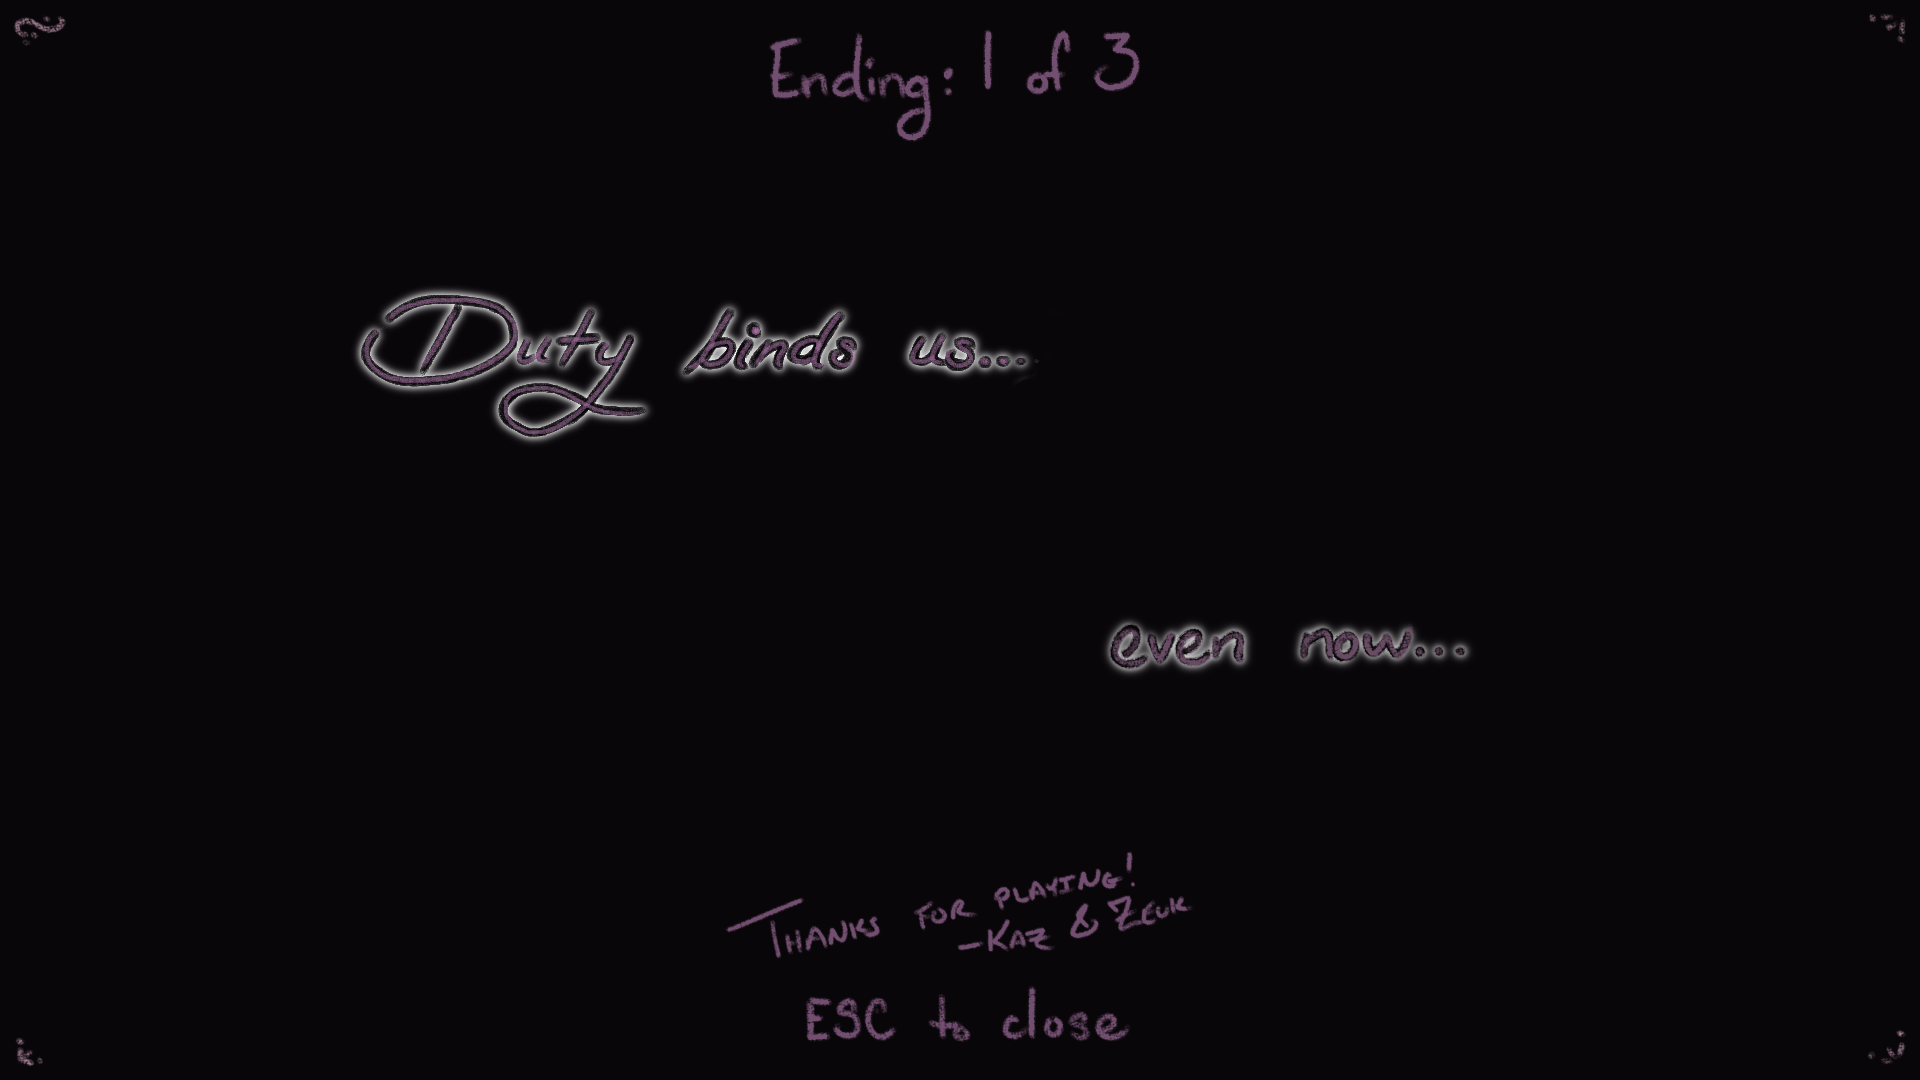 Ending: 1 of 3
Duty binds us...
even now...
THANKS FOR PLAYING!
-KAZ & ZEUK
ESC to close